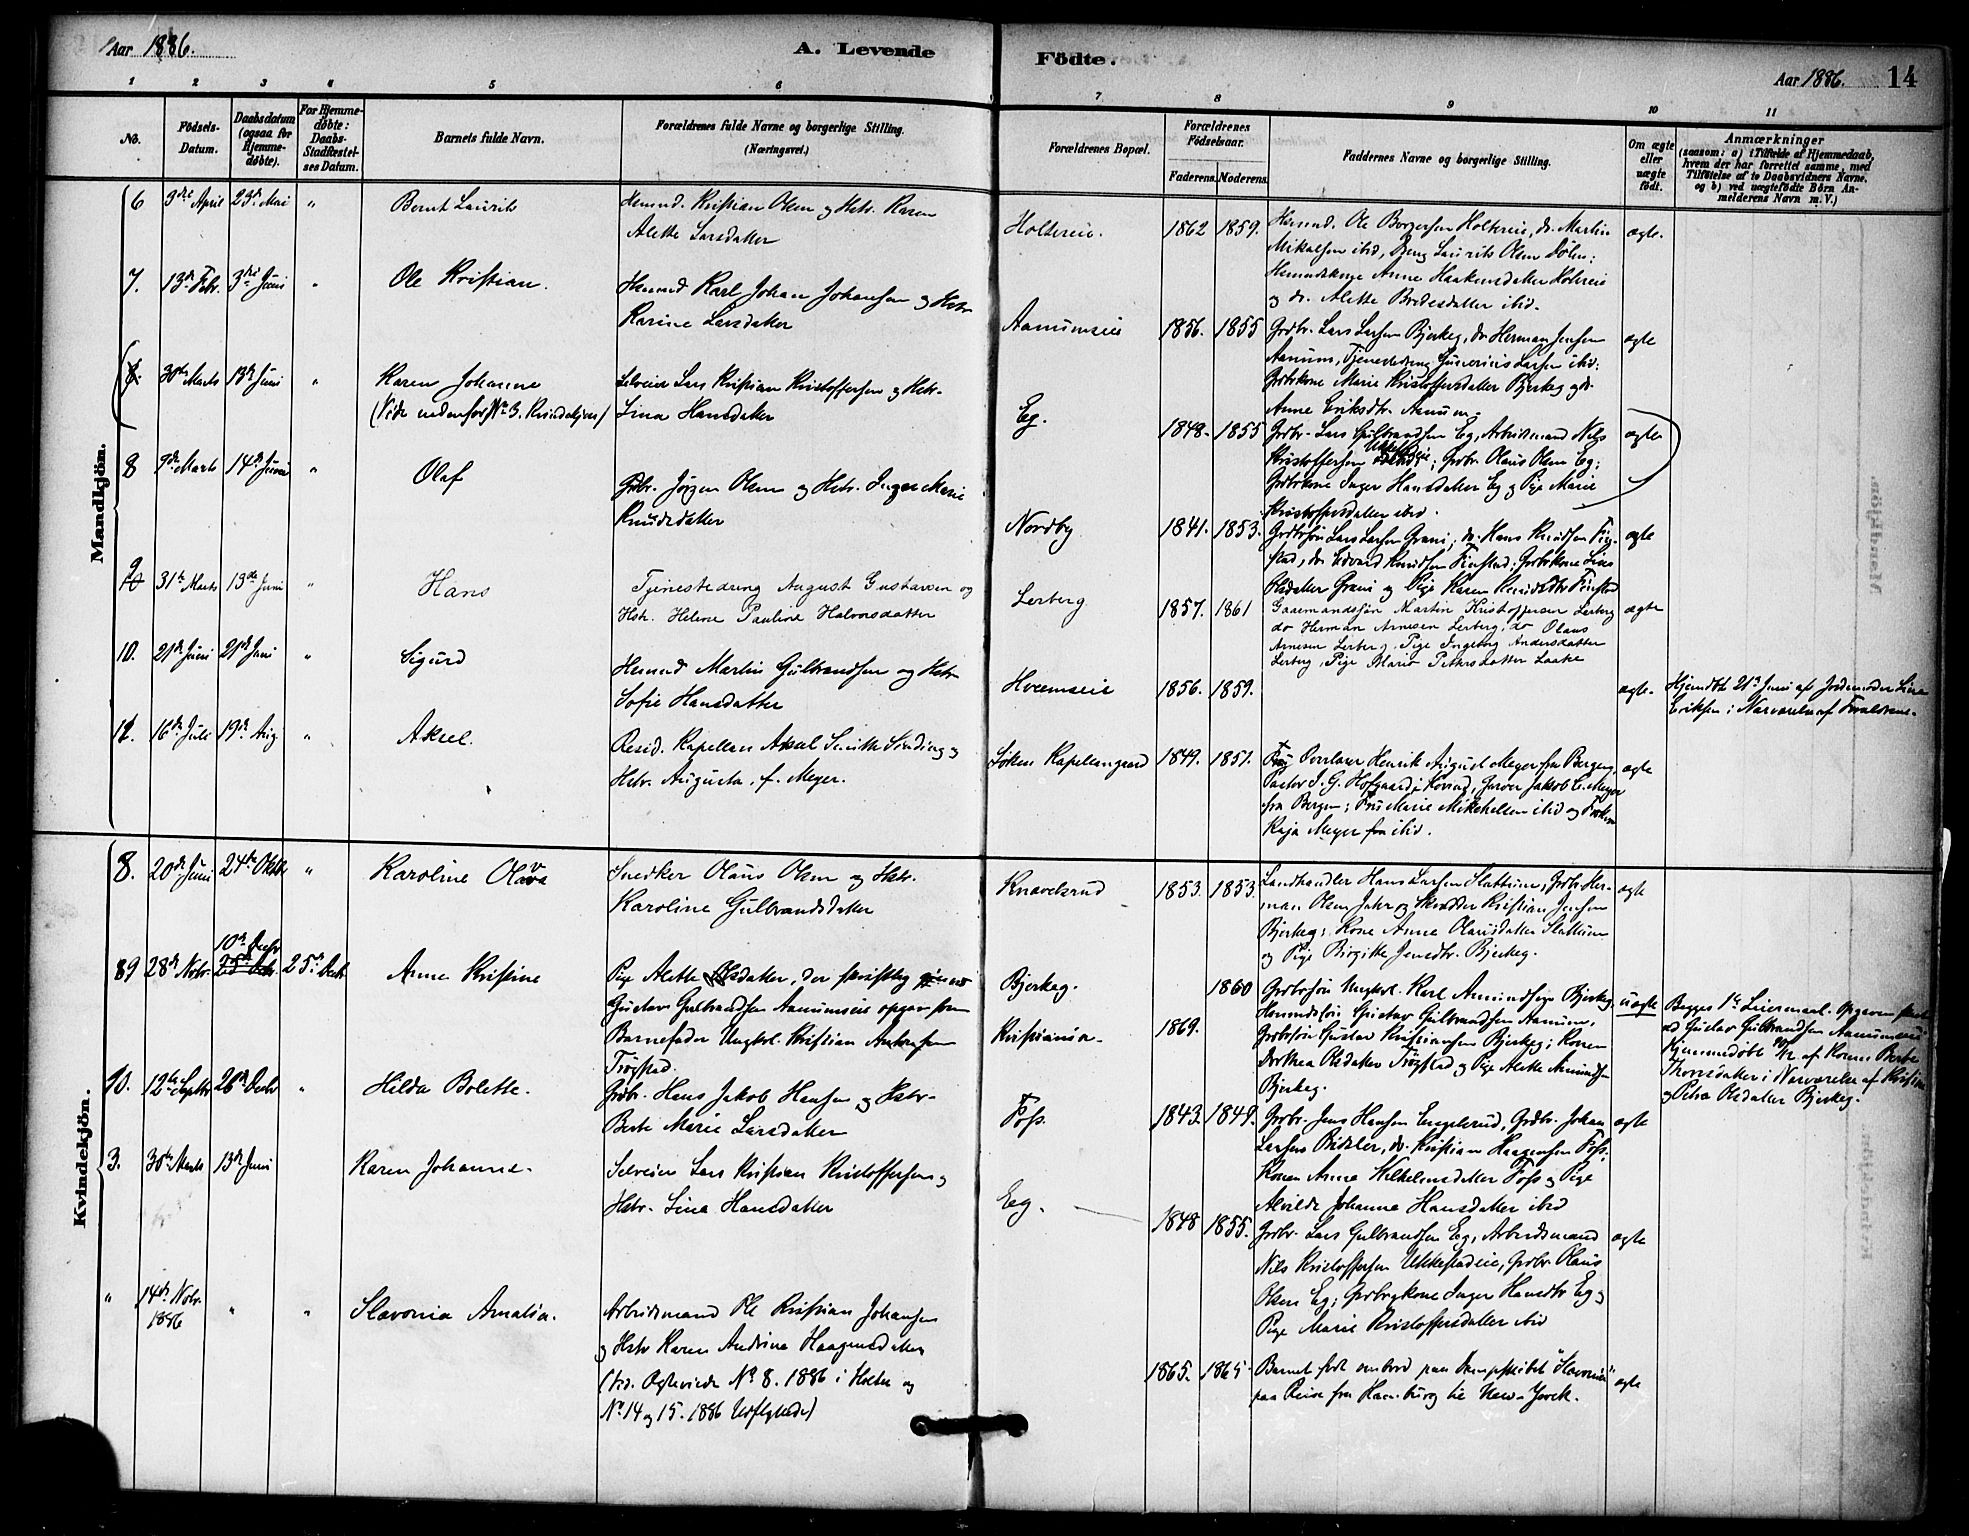 Aar 1886.
A. Levende
Födte.
Aar 1886.
14
1 2 3 4 5 6 7 8 9 10 11
No.
Födsels-
Datum.
Daabsdatum
(ogsaa for
Hjemme-
döbte).
For Hjemme-
döbte:
Daabs-
Stadfæstel-
ses Datum.
Barnets fulde Navn.
Forældrenes fulde Navne og borgerlige Stilling.
(Næringsvei.)
Forældrenes Bopæl.
Forældrenes
Födselsaar.
Faderens.
Moderens.
Faddernes Navne og borgerlige Stilling.
Om ægte
eller
uægte
födt.
Anmærkninger
(saasom: a) i Tilfælde af Hjemmedaab,
hvem der har forrettet samme, med
Tilföielse af to Daabsvidners Navne,
og b) ved uægtefödte Börn An-
melderens Navn m. V.)
Mandkjön.
6 3die April 23de Mai " Bernt Laurits
Husmd. Kristian Olsen og Hstr. Karen
Alette Larsdatter
Holtereie. 1862 1859.
Husmd. Ole Borgersen Holtereie, do. Martin
Mikalsen ibid, Laurits Olsen
Anne Haakensdatter Holtereie
og do. Alette ibid.
ægte.
7. 13de Febr. 3die Juni " Ole Kristian.
Husmd Karl Johan Johansen og Hstr
Karine Larsdatter
Aanumseie 1856. 1855
Grdbr. Lars Larsen Bjerkeg, do Herman Jensen
Aanum, Tjenestedreng Larsen ibid:
Grdbrkone Marie Kristoffersdatter Bjerkeg og do.
Anne Eriksdtr. Aanum.
ægte
8. 30te Marts 13de Juni " Karen Johanne
(Vide nedenfor No 3. Kvindekjøn)
Selveier Lars Kristian Kristoffersen og Hstr.
Lina Hansdatter
Eg. 1848. 1855
Grdbr. Lars Gulbrandsen Eg, Arbeidsmand Nils
Kristoffersen ; Grdbr. Olaus Olsen Eg;
Grdbrkone Inger Hansdatter Eg og Pige Marie
Kristoffersdatter ibid.
ægte
8 9de Marts 14de Juni " Olaf
Grdbr. Jørgen Olsen og Hstr. Inger Marie
Knudsdatter
Nordby 1841. 1853.
Lars Larsen Grani, do. Hans Knudsen Fin-
stad, do. Edvard Knudsen Finstad; Grdbrkone Lina
Olsdatter Grani og Pige Karen Finstad
ægte
9 10 31te Marts 13de Juni " Hans
Tjenestedreng August Gustavsen og
Hstr. Helene Pauline Halvorsdatter
Lerberg 1857. 1861
Gaardmandssøn Martin Kristoffersen Lerberg
do Herman Arnesen Lerberg, do Olaus
Arnesen Lerberg, Pige Ingeborg Andersdatter
Lerberg, Pige Marie Pettersdatter Laake
ægte
10. 21de Juni 21de Juni " Sigurd
Husmd Martin Gulbrandsen og Hstr
Sofie Hansdatter
Hveemseie 1856. 1859.
ægte.
Hjemdbt 21de Juni af Jordemoder Lina
Eriksen i Nærværelse af Forældrene.
11. 16de Juli 19de Aug. " Aksel.
Resid. Kapellan Aksel Smith Sinding og
Hstr. Augusta, f. Meyer.
Søken Kapellangaard 1849. 1851.
Overlærer Henrik August Meyer fra Bergen,
Pastor J. G. Hofgaard i , Jakob C. Meyer
fra Bergen; Fru Marie Mikkelsen ibid og Frøken
Kaja Meyer fra ibid.
ægte
Kvindekjön.
8. 20de Juni 24de Oktbr " Karoline Olava
Snedker Olaus Olsen og Hstr.
Karoline Gulbrandsdatter
Knavelsrud 1853. 1853.
Landhandler Hans Larsen Slattum, Grdbr. Her-
man Olsen og Skrædder Kristian Jensen
Bjerkeg; Kone Anne Olausdatter Slattum
og Pige Birgitte Jensdtr. Bjerkeg.
ægte
89 28de Novbr. 10de Decbr 25de Decbr 25de Decbr Anna Kristine
Pige Alette Olsdatter, der skriftlig
Gustav Gulbrandsen Aanumseie opgav som
Barnefader Ungkrl. Kristian
Frogstad.
Bjerkeg.
Kristiania.
1869. 1860
Grdbrsøn Ungkrl. Karl Amundsen Bjerkeg,
Husmdssøn Gustav Gulbrandsen Aanum,
Grdbrsøn Gustav Kristiansen Bjerkeg; Konen
Dorthea Olsdatter Frogstad og Pige Alette
Bjerkeg.
uægte
Begges 1ste Leiermaal. Opgiven
ved Gustav Gulbrandsen Aanumseie
Hjemmedøbt 10/12 af Konen Berte
Thorsdatter i Nærværelse af Kristian
og Petra Olsdatter Bjerkeg.
10. 12te Septbr 26de Decbr " Hilda Bolette.
Grdbr. Hans Jakob Hansen og Hstr.
Berte Marie Larsdatter
Foss. 1843 1849.
Grdbr. Jens Hansen Engelsrud, Grdbr. Johan
Larsen , do. Kristian Haagensen Foss,
Konen Anna Vilhelmsdatter Foss og Pige
Alvilde Johanna Hansdatter ibid
ægte
3. 30te Marts 13de Juni Karen Johanne.
Selveier Lars Kristian Kristoffersen og
Hstr. Lina Hansdatter
Eeg. 1848 1855.
Grdbr. Lars Gulbrandsen Eg, Arbeidsmand
Nils Kristoffersen Ukkestadeie, Grdbr Olaus
Olsen Eg; Grdbrgkone Inger Hansdtr Eg og
Pige Marie Kristoffersdatter ibid
ægte
" 14de Novbr.
1886 " " Slavonia Amalia.
Arbeidsmand Ole Kristian Johansen
og Hstr Karen Andrina Haagensdatter
(vid. Ægteviede No 8. 1886 i Holter og
No. 14 og 15. 1886 Udflyttede)
1865. 1865.
Barnet født ombord paa Dampskibet "Slavonia"
paa Reise fra Hamburg til New-Yorck.
ægte